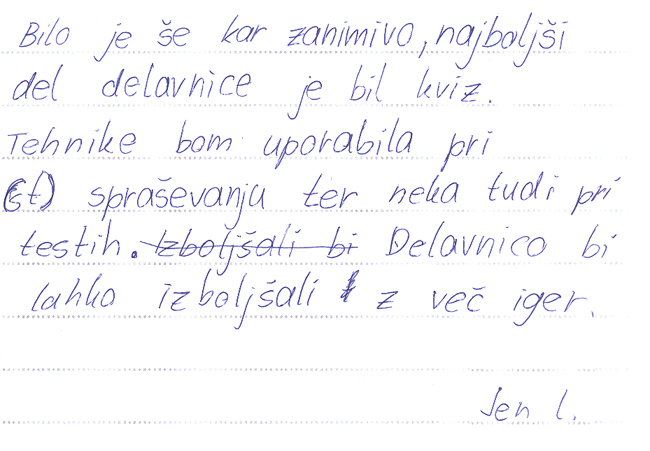 Bilo je še kar zanimivo, najboljši
del delavnice je bil kviz.
Tehnike bom uporabila pri
spraševanju ter neka tudi pri
testih. Izboljšali bi Delavnico bi
lahko izboljšali z več iger.
Jen l.